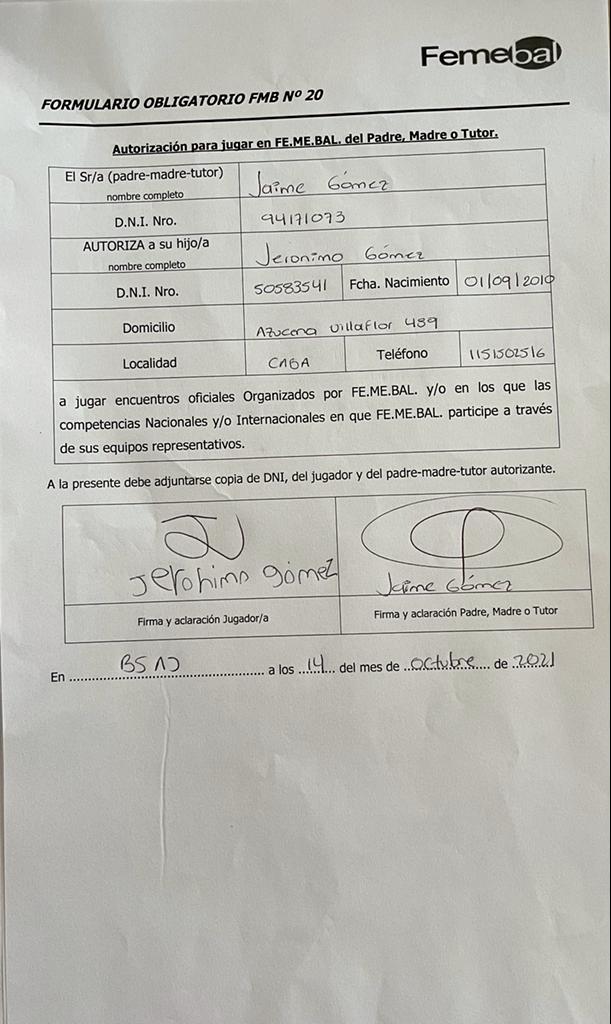 Femebal
FORMULARIO OBLIGATORIO FMB Nº 20
Autorización para jugar en FE.ME.BAL. del Padre, Madre o Tutor.
El Sr/a (padre-madre-tutor)
nombre completo
Jaime Gómez
D.N.I. Nro.
94171073
AUTORIZA a su hijo/a
nombre completo
Jeronimo Gómez
D.N.I. Nro.
50583541
Fcha. Nacimiento
01/09/2010
Domicilio
Azucena Villaflor 489
Localidad
CABA
Teléfono
1151502516
a jugar encuentros oficiales Organizados por FE.ME.BAL. y/o en los que las
competencias Nacionales y/o Internacionales en que FE.ME.BAL. participe a través
de sus equipos representativos.
A la presente debe adjuntarse copia de DNI, del jugador y del padre-madre-tutor autorizante.
Jeronimo gómez
Jaime Gómez
Firma y aclaración Jugador/a
Firma y aclaración Padre, Madre o Tutor
En BS AS a los 14 del mes de octubre de 2021